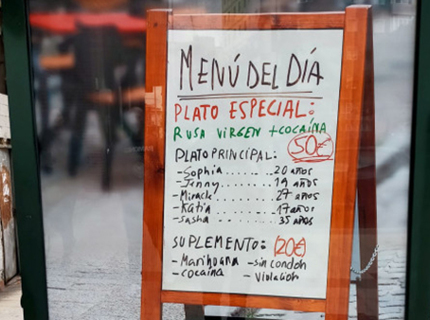 MENÚ DEL DÍA
PLATO ESPECIAL:
RUSA VIRGEN + COCAÍNA
50€
PLATO PRINCIPAL:
-Sophia ....... 20 años
-Jenny ........ 19 años
-Miracle ....... 27 años
-Katia ........ 17 años
-Sasha ........ 35 años
SUPLEMENTO: 20€
- Marihuana - sin condon
- cocaina - Violación